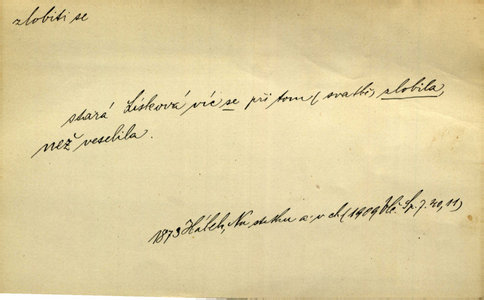 zlobiti se
stará Lísková víc se při tom (svatbě) zlobila,
než veselila.
1873 Hálek, Na statku a v ch (1909 Vil. Sp. 7. 20, 11)